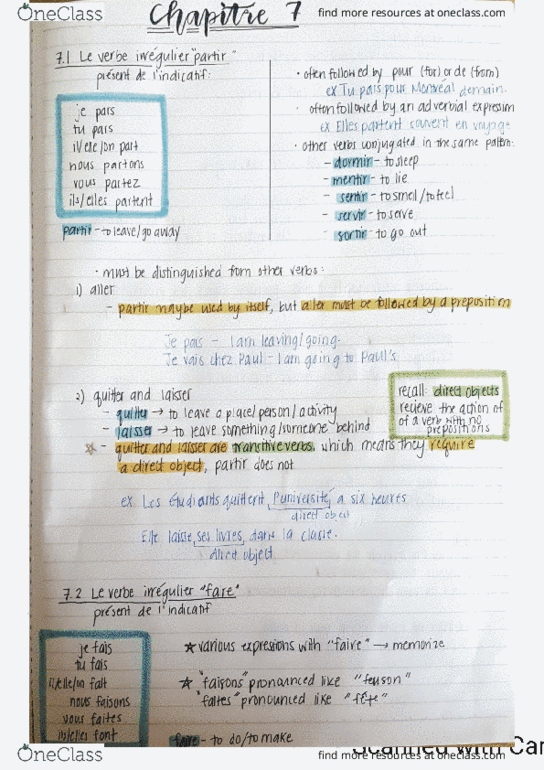 OneClass
find more resources at oneclass.com
Chapitre 7
7.1 Le verbe irrégulier "partir"
présent de l'indicatif:
je pars
tu pars
il/elle/on part
nous partons
vous partez
ils/elles partent
partir - to leave/go away
• often followed by pour (for) or de (from)
ex Tu pars pour Montréal demain.
• often followed by an adverbial expression
ex. Elles partent souvent en voyage
• other verbs conjugated in the same pattern:
- dormir - to sleep
- mentir - to lie
- sentir - to smell/to feel
- servir - to serve
- sortir - to go out
• must be distinguished from other verbs:
1) aller
- partir maybe used by itself, but aller must be followed by a preposition
Je pars - I am leaving/going.
Je vais chez Paul - I am going to Paul's
2) quitter and laisser
- quitter → to leave a place/person/activity
- laisser → to leave something/someone behind
☆ - quitter and laisser are transitive verbs, which means they require
a direct object, partir does not
recall: direct objects
recieve the action of
of a verb with no
prepositions
ex Les étudiants quittent l'université à six heures
direct object
Elle laisse ses livres dans la classe.
direct object
7.2 Le verbe irrégulier "faire"
présent de l'indicatif
je fais
tu fais
il/elle/on fait
nous faisons
vous faites
ils/elles font
★ various expressions with "faire" → memorize
★ "faisons" pronounced like "feuson"
"faites" pronounced like "fête"
faire - to do/to make
Scanned with Car
OneClass
find more resources at oneclass.com